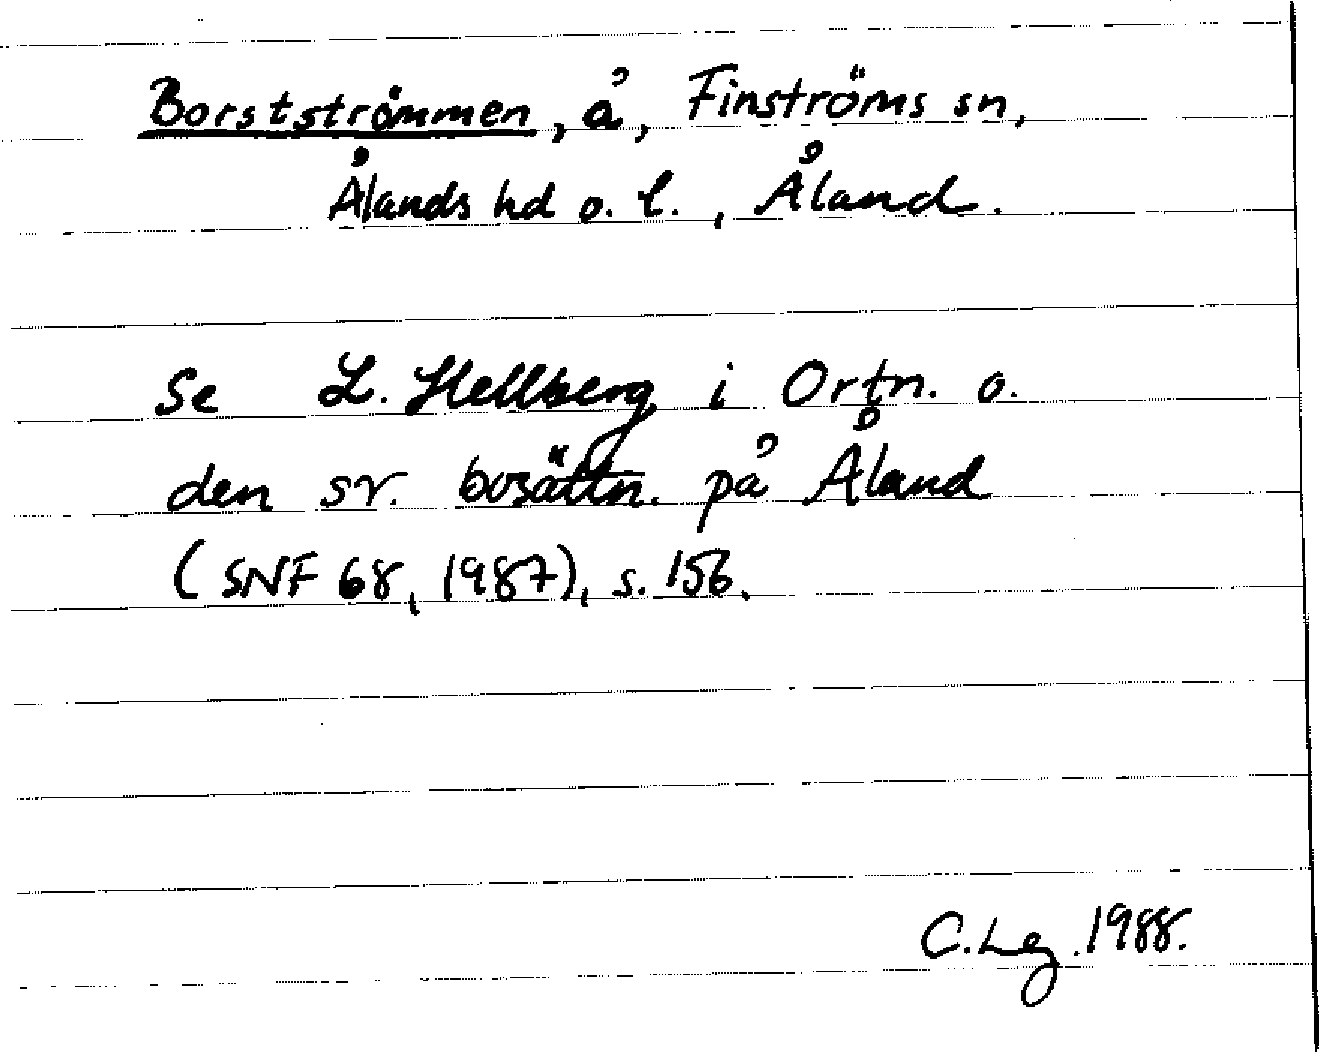 Borstströmmen, å, Finströms sn,
Ålands hd o. l., Åland.
Se L. Hellberg i Ortn. o.
den sv. bosättn. på Åland
(SNF 68, 1987), s. 156.
C. Lg. 1988.